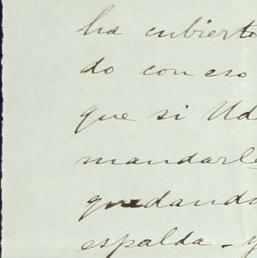 ha cubierto
do con eso
que si Ud
mandarle
quedando
espalda - y